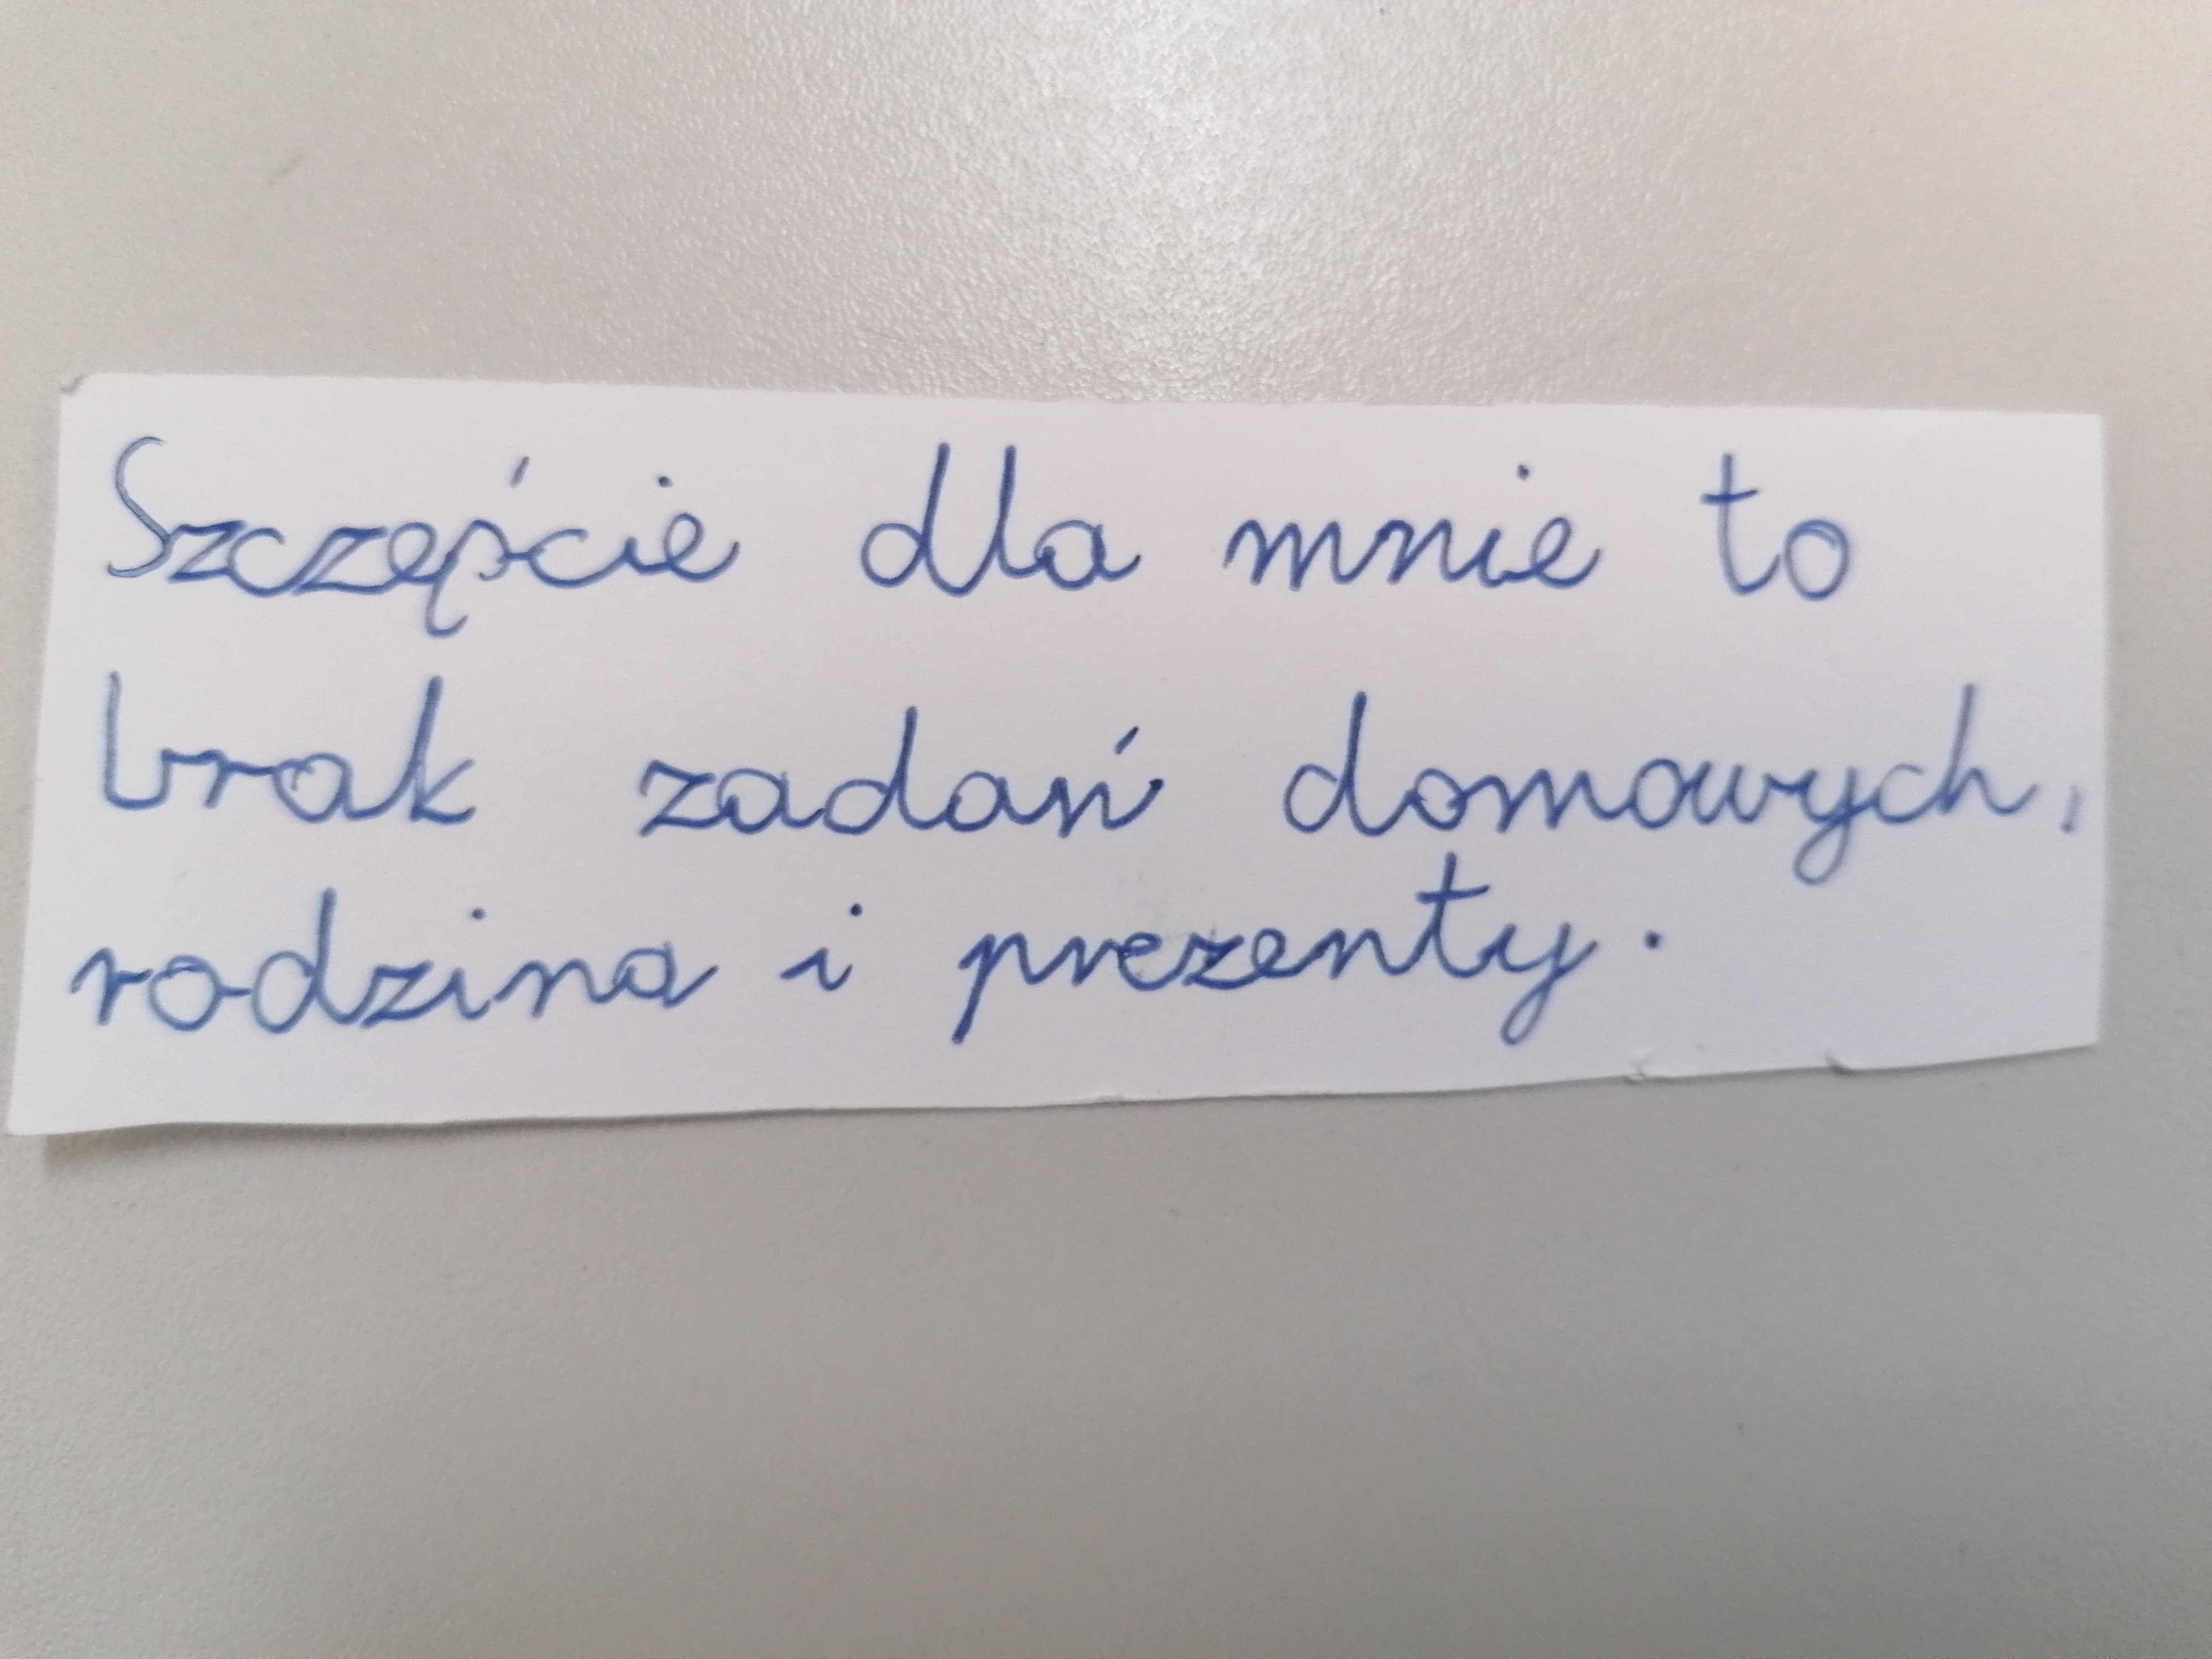 Szczęście dla mnie to
brak zadań domowych,
rodzina i prezenty.